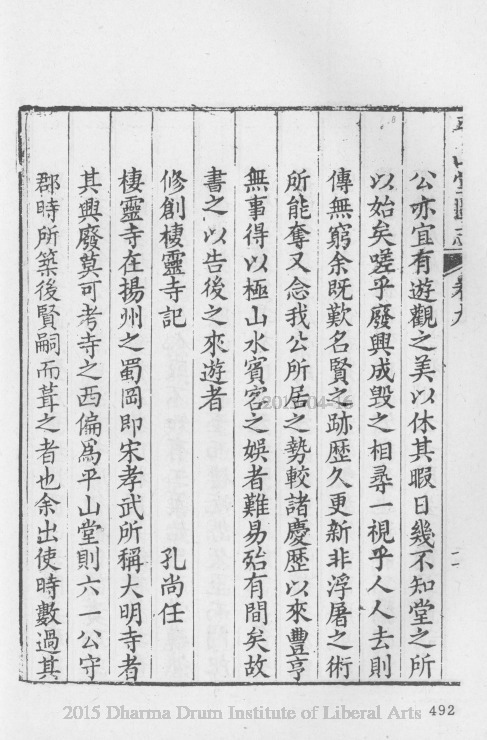 平山堂圖志 卷九
公亦宜有遊觀之美以休其暇日幾不知堂之所
以始矣嗟乎廢興成毁之相尋一視乎人人去則
傳無窮余既歎名賢之跡歷久更新非浮屠之術
所能奪又念我公所居之勢較諸慶歷以來豐亨
無事得以極山水賓客之娛者難易殆有間矣故
書之以告後之來遊者
修創棲靈寺記 孔尚任
棲靈寺在揚州之蜀岡即宋孝武所稱大明寺者
其興廢莫可考寺之西偏爲平山堂則六一公守
郡時所築後賢嗣而葺之者也余出使時數過其
2015-04-16
2015 Dharma Drum Institute of Liberal Arts 492